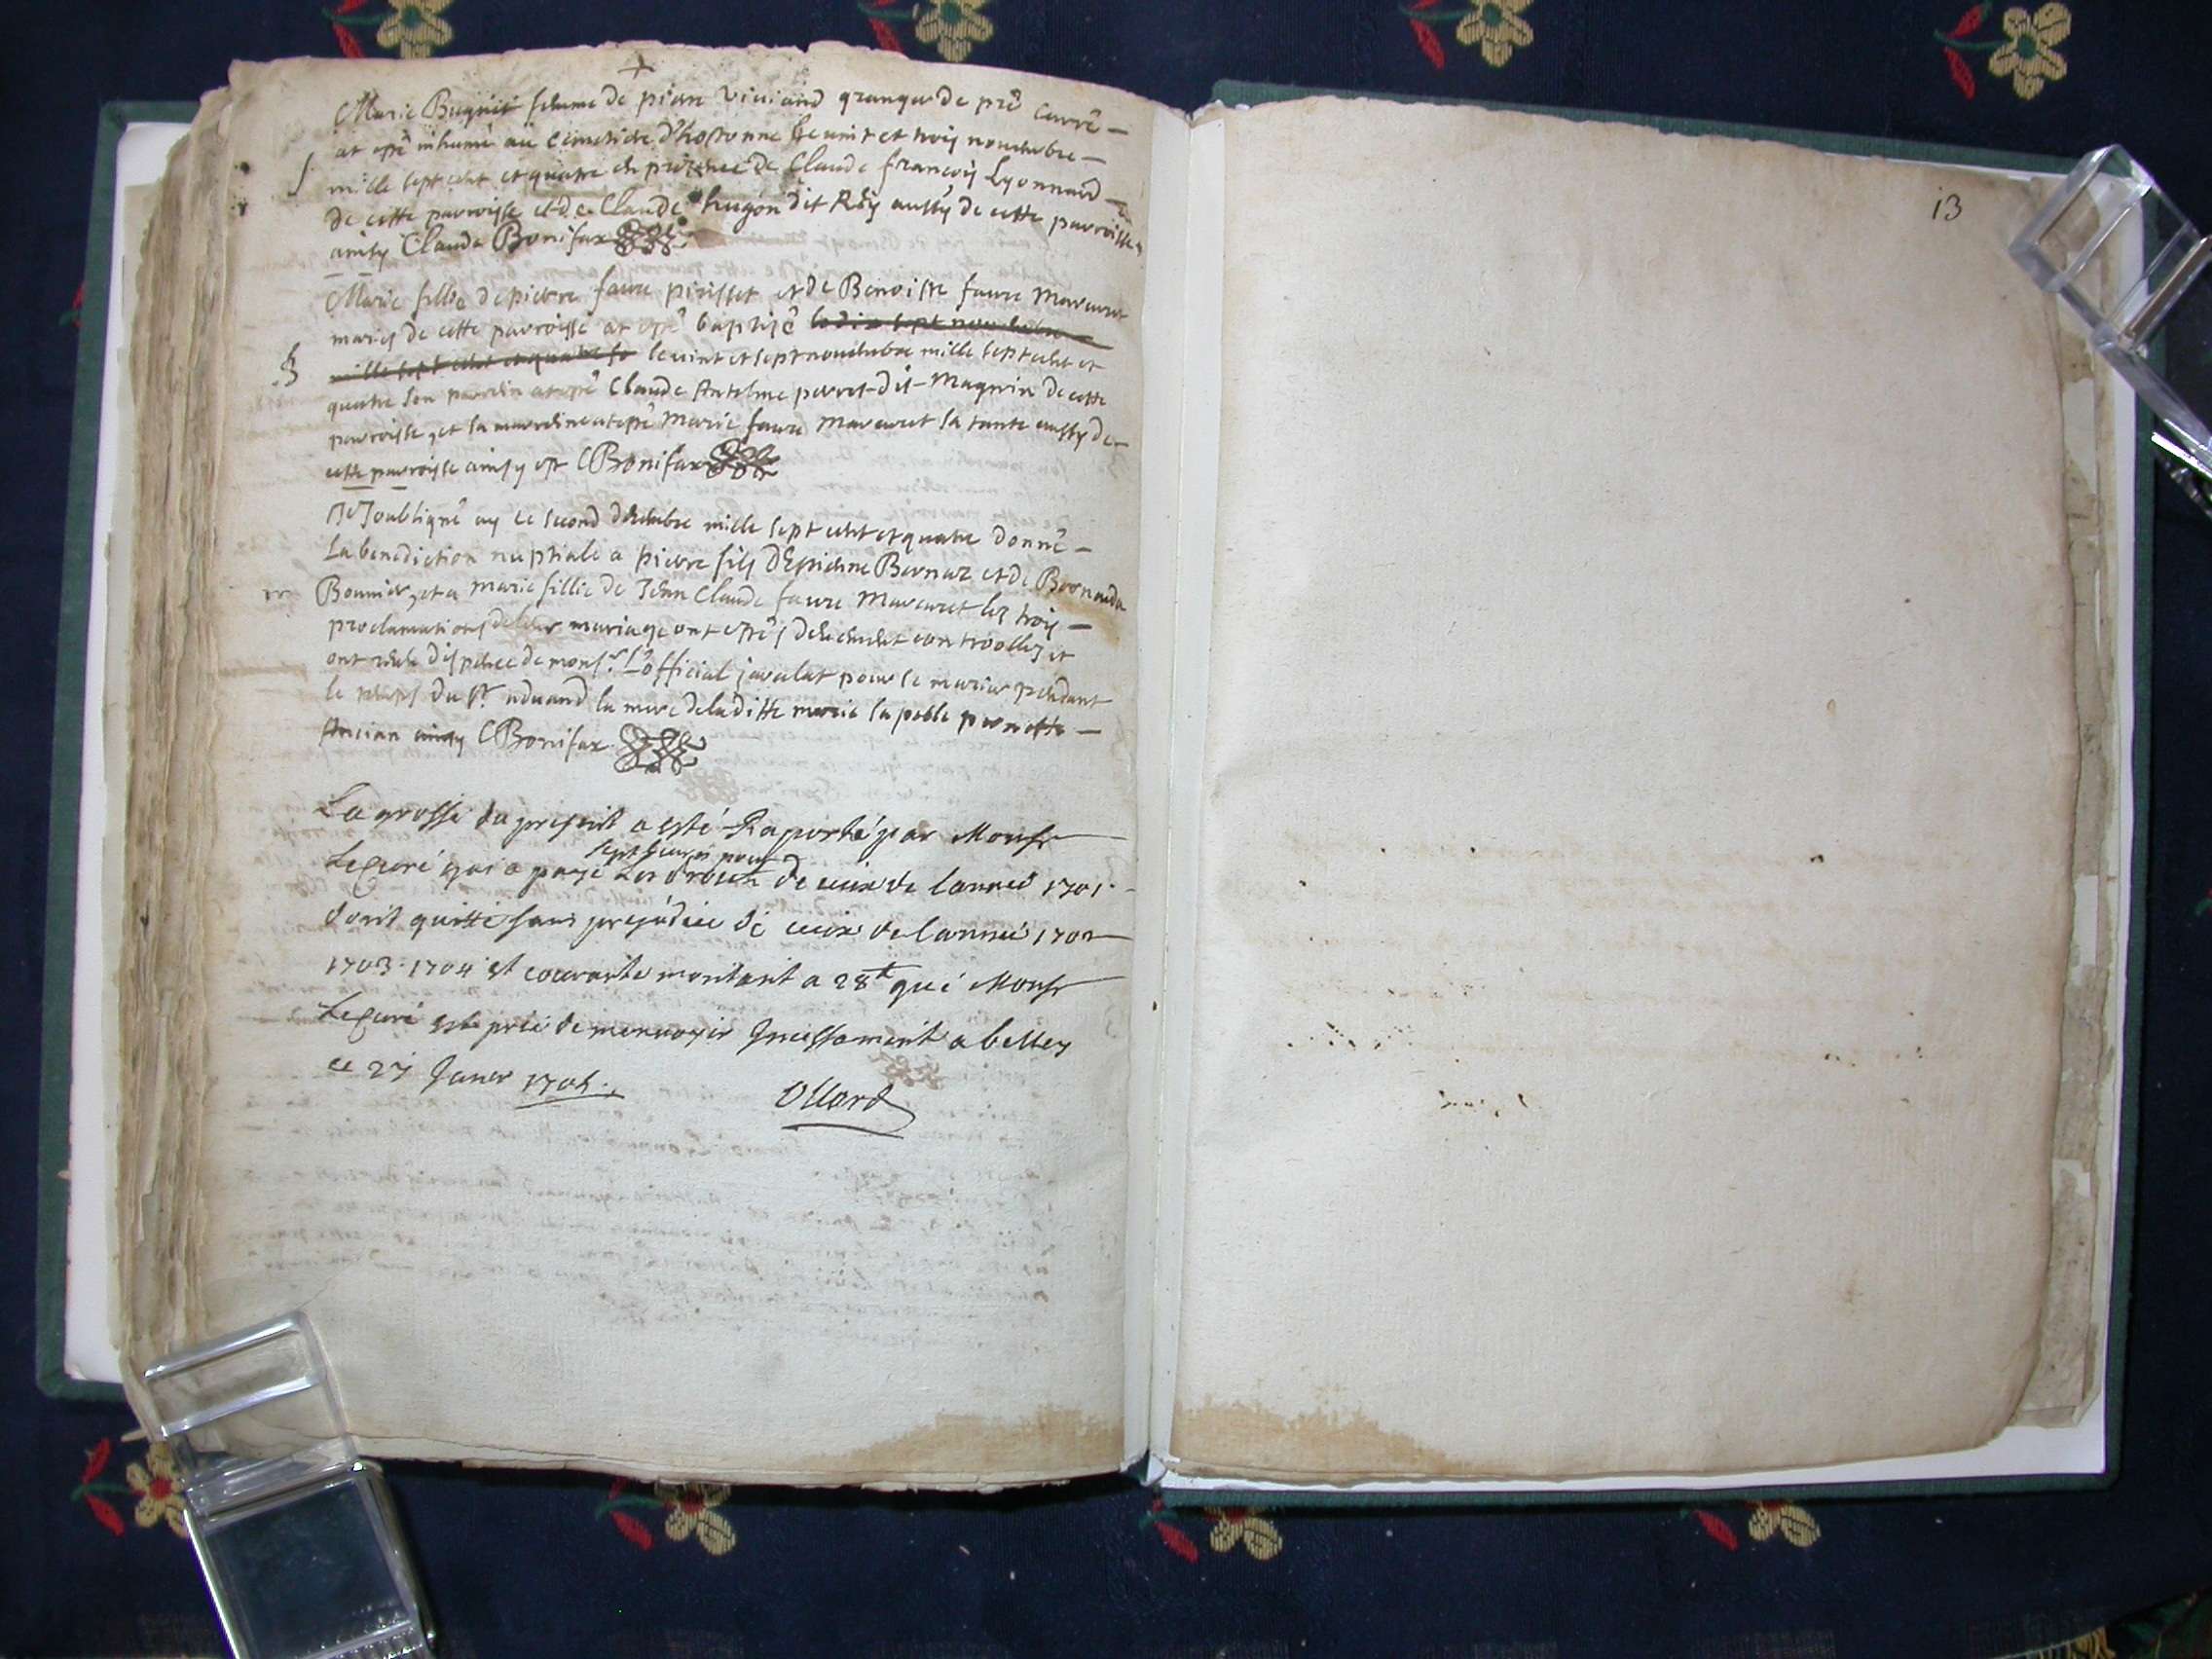 Marie femme de piere Viviand granger de pré Carré —
at esté inhumé au Cimetiere d'hostonne le vint et trois novembre —
mille sept cent et quatre en presence de Claude françois Lyonnard —
S
de cette parroisse et de Claude hugon dit Rey aussy de cette parroisse
ainsy Claude Bonifax
Marie fillie de pierre favre et de Benoiste favre Mararet
mariés de cette parroisse at esté baptisé le dix sept novembre
B
mille sept cent et quatre le vint et sept novembre mille sept cent et
quatre son parrein at esté Claude Antelme perret dit Magnin de cette
parroisse, et sa marreine at esté Marie favre Mararet sa tante aussy de —
cette parroisse ainsy est CBonifax
Je soubsigné ay le second decembre mille sept cent et quatre donné —
La benediction nuptiale a pierre fils d'Estienne Bernaz et de Bernarda
m
Bounier, et a Marie fillie de Jean Claude favre Mararet les trois —
proclamations de leur mariage ont estés et
ont dispence de monsr. L'official javalat pour se marier pendant
le temps du st advand la mere de laditte marie sapelle pernette —
Ancian ainsy CBonifax
La grosse du present a esté Raporté par Monsr
sept livres pour
Le Curé qui a payé Les droits de ceux de lannee 1701
dont quitte sans prejudice de ceux de lannée 1702
1703. 1704 et courante montant a 28 que Monsr
Le Curé est prié de menvoyer Incessament a belley
ce 27 Janer 1705.
Ollard
13